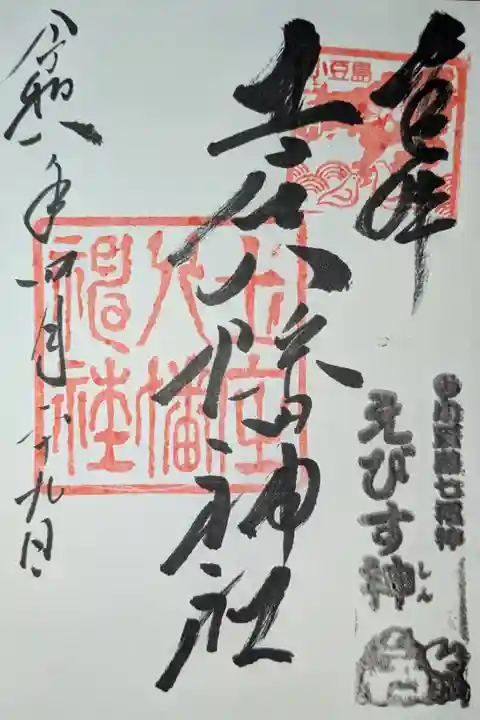 奉拝
小豆島
土庄八幡神社
土庄八幡神社
令和八年四月二十九日
えびす神
しん